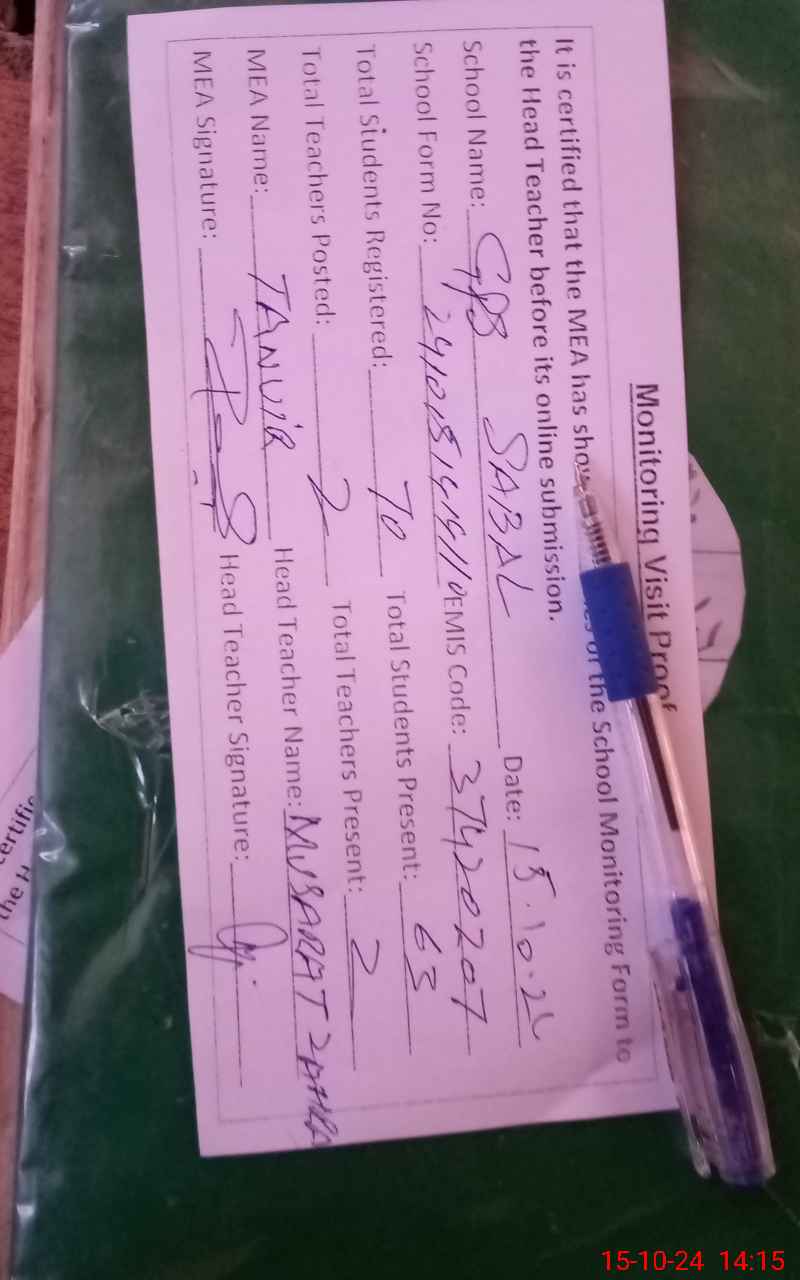 Monitoring Visit Proof
It is certified that the MEA has of the School Monitoring Form to
the Head Teacher before its online submission.
School Name: GPS SABAL Date: 15.10.24
School Form No: EMIS Code: 37420207
Total Students Registered: 70 Total Students Present: 63
Total Teachers Posted: 2 Total Teachers Present: 2
MEA Name: TANVIR Head Teacher Name: MUSARAT ZAHRA
MEA Signature: Head Teacher Signature:
the H
15-10-24 14:15